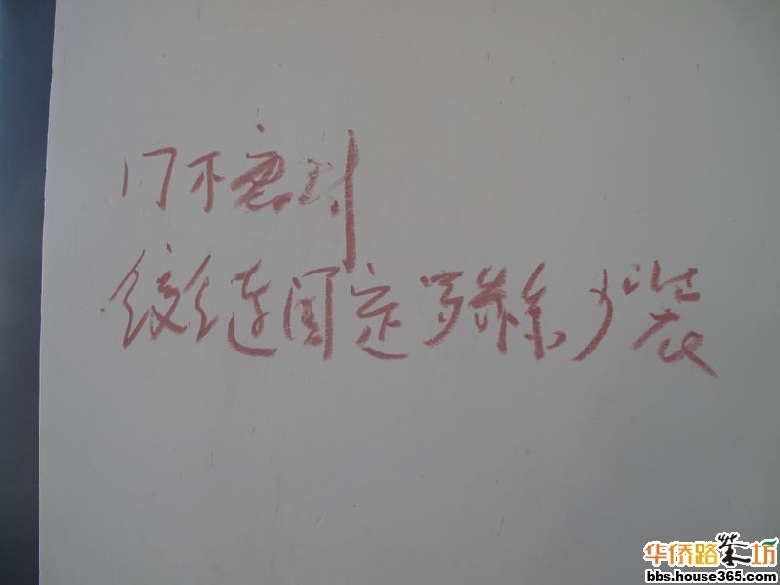 门不密封
绞链固定罗丝少装
华侨路茶坊
bbs.house365.com